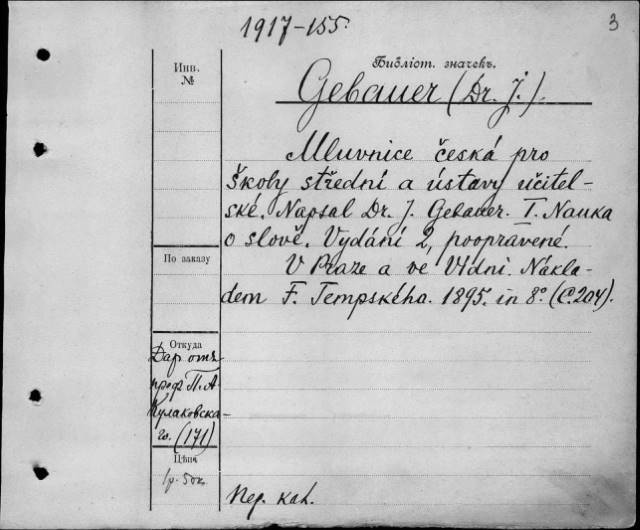 1917-155.
3
Библіот. значекъ.
Инв.
№
Gebauer (Dr. J.).
Mluvnice česká pro
školy střední a ústavy učitel-
ské. Napsal Dr. J. Gebauer. I. Nauka
o slově. Vydání 2, poopravené.
V Praze a ve Vídni. Nákla-
dem F. Tempského. 1895. in 8º. (C. 204).
По заказу
Откуда
Даръ отъ
проф. П. А
Кулаковска-
го. (171)
Цѣна
1р. 50к
Пер. кал.